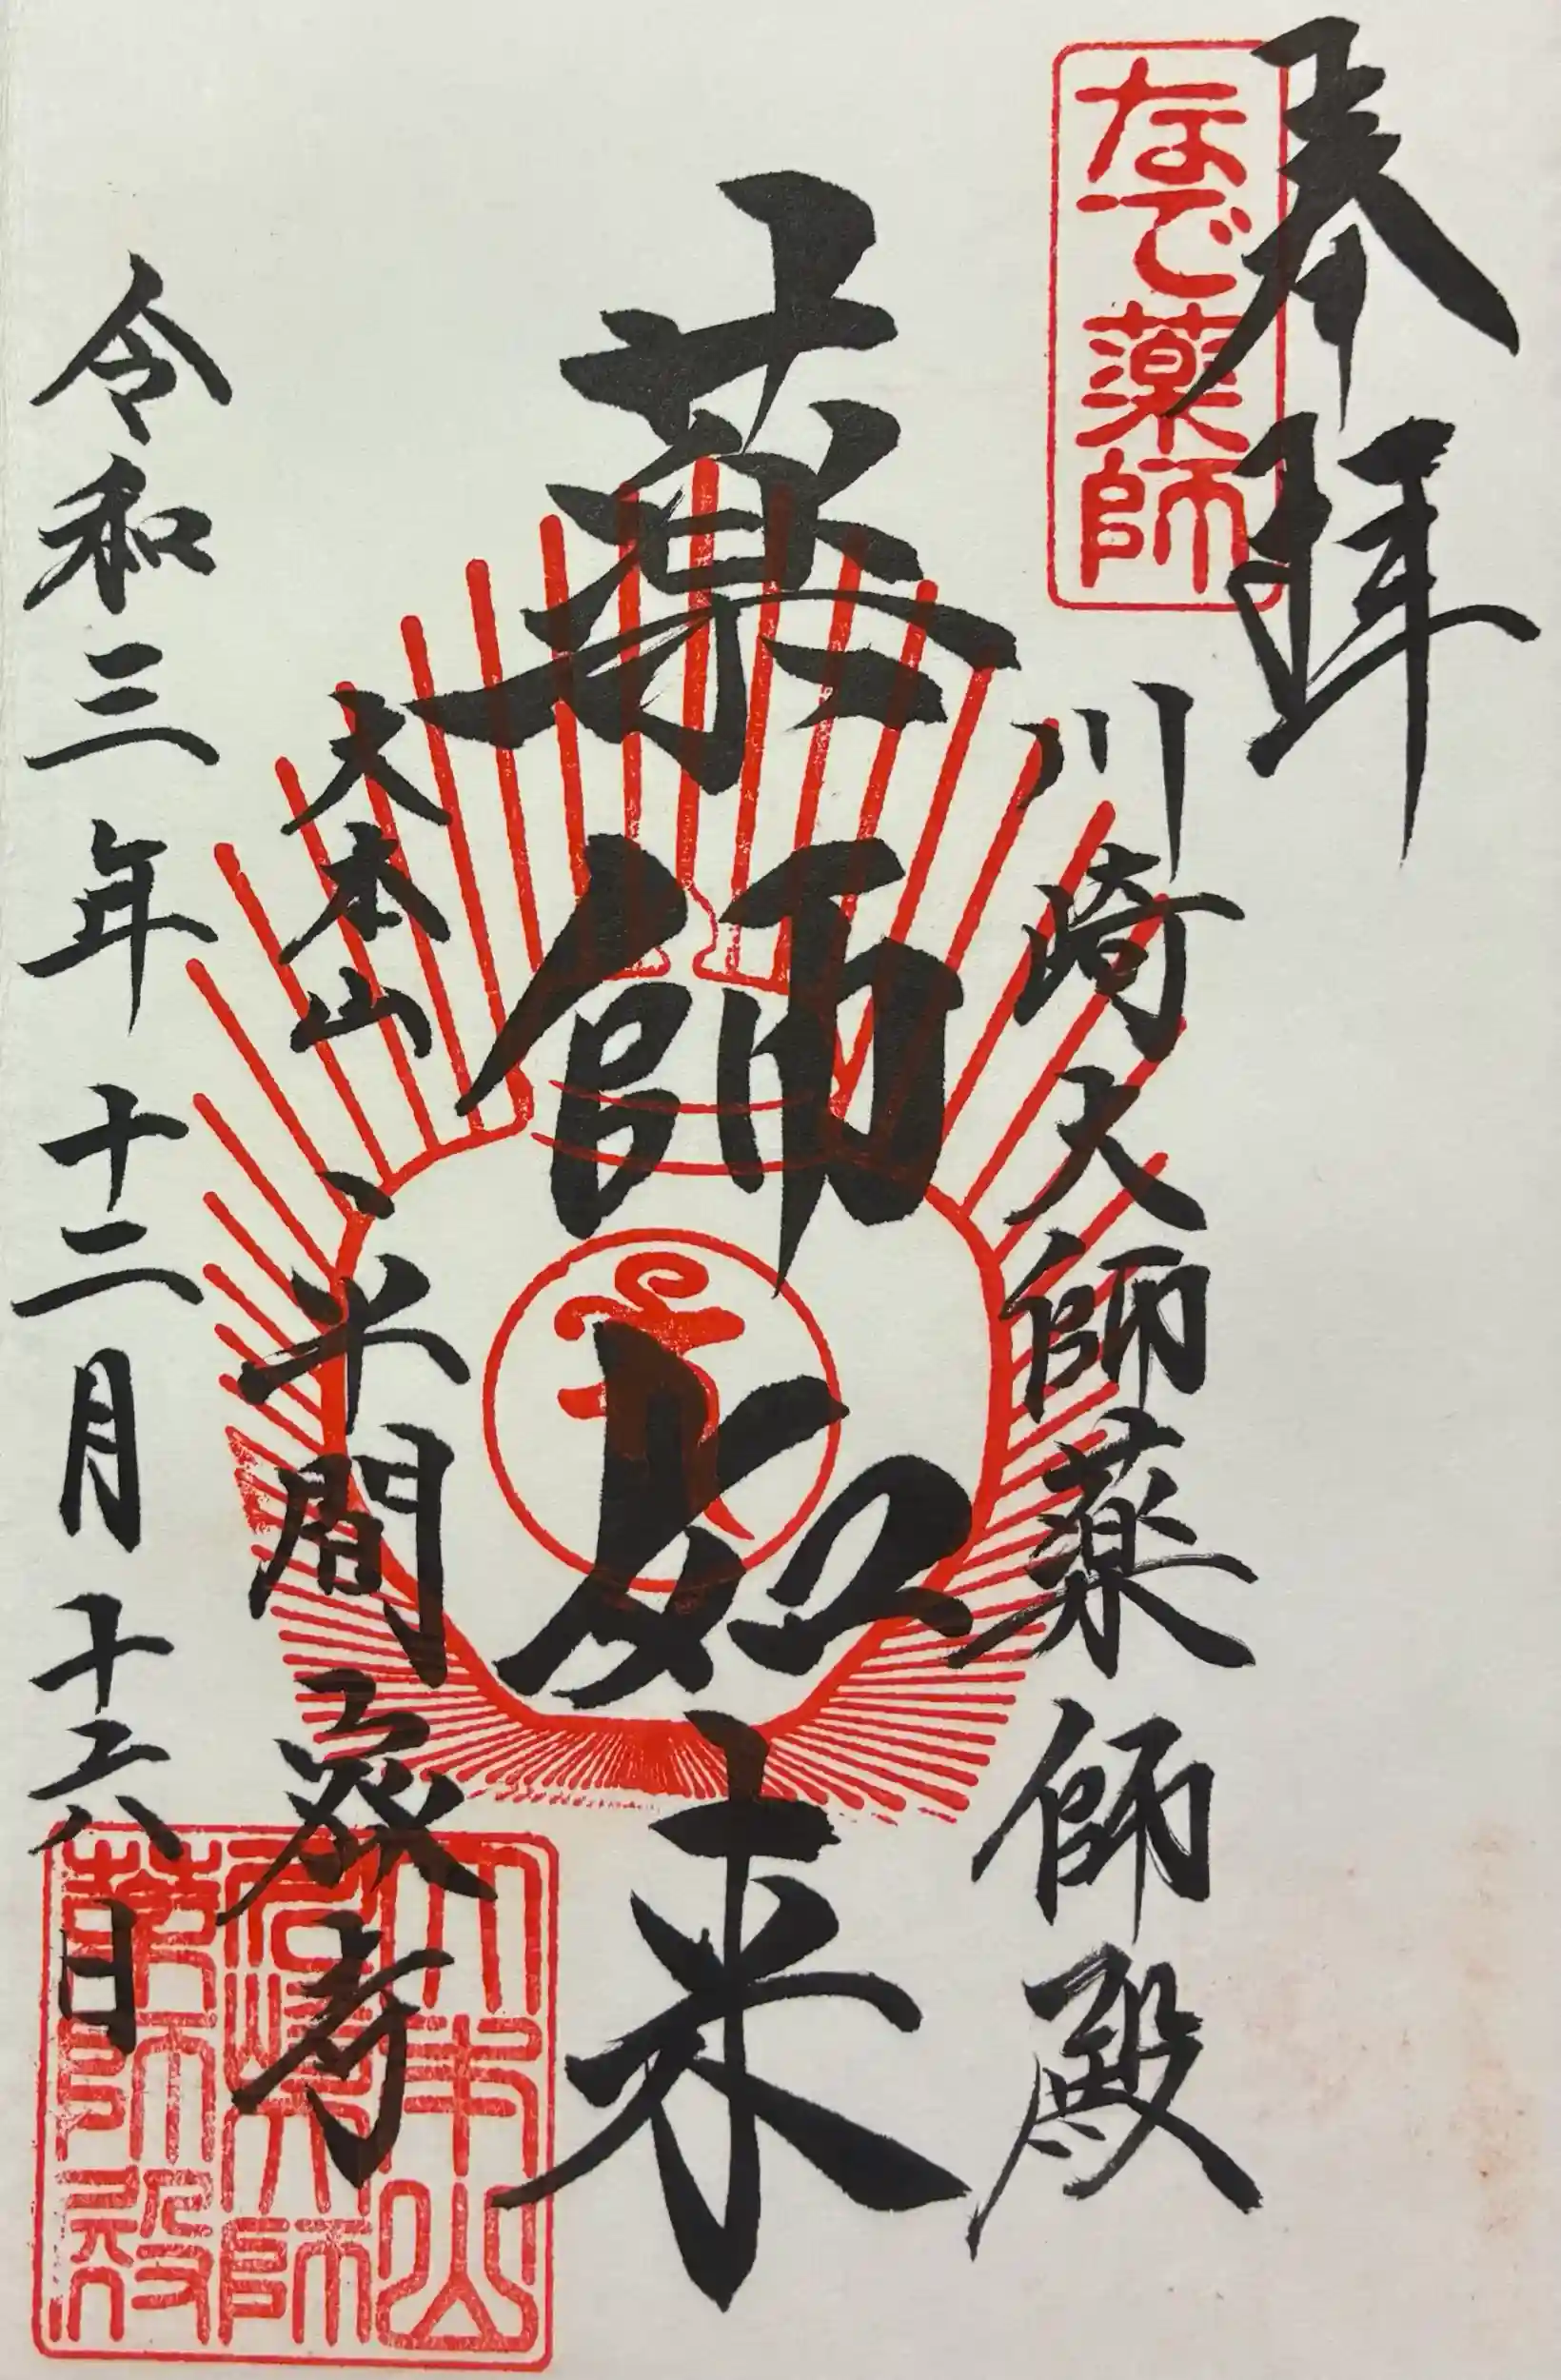 奉拝
なで薬師
川崎大師薬師殿
薬師如来
大本山
平間寺
令和三年十二月十六日
大本山
崎大師
薬師殿